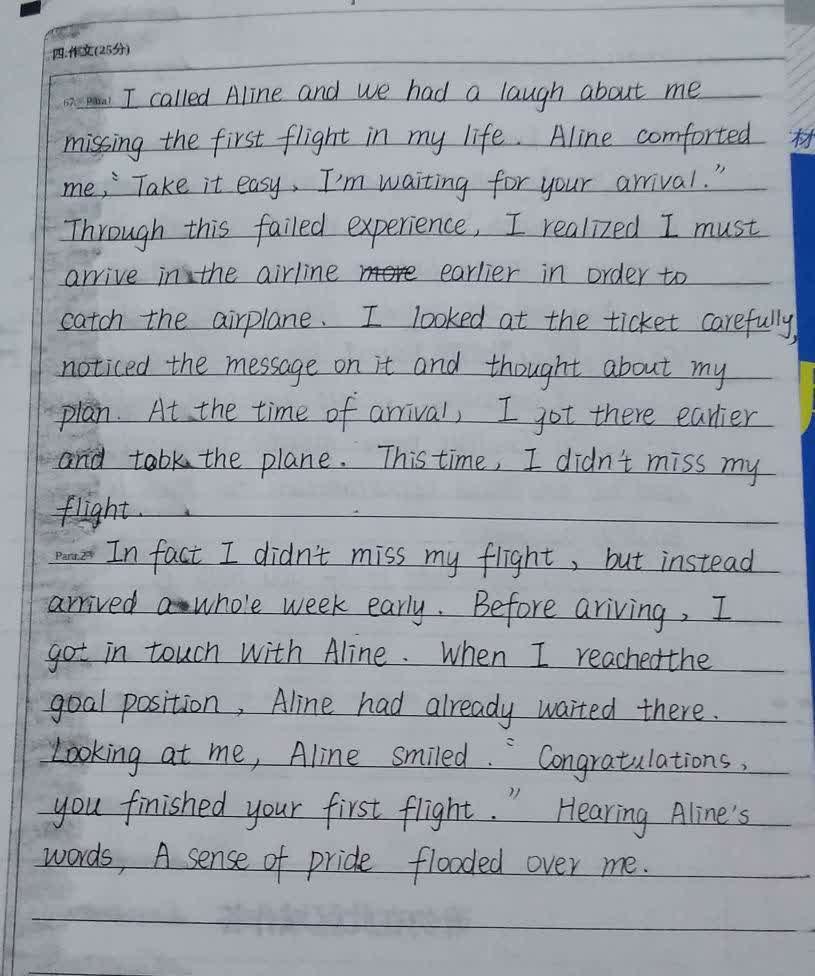 四.作文(25分)
67. Para.1 I called Aline and we had a laugh about me
missing the first flight in my life. Aline comforted
me, "Take it easy, I'm waiting for your arrival."
Through this failed experience, I realized I must
arrive in the airline more earlier in order to
catch the airplane. I looked at the ticket carefully,
noticed the message on it and thought about my
plan. At the time of arrival, I got there earlier
and took the plane. This time, I didn't miss my
flight.
Para.2 In fact I didn't miss my flight, but instead
arrived a whole week early. Before ariving, I
got in touch with Aline. When I reached the
goal position, Aline had already waited there.
Looking at me, Aline smiled. "Congratulations,
you finished your first flight." Hearing Aline's
words, A sense of pride flooded over me.
材